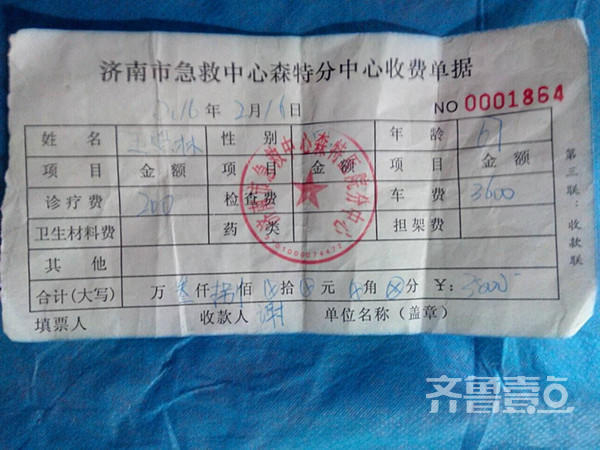 济南市急救中心森特分中心收费单据
2016年2月16日 NO 0001864
姓名 性别 年龄 67
项目 金额 项目 金额 项目 金额
诊疗费 200 检查费 车费 3600
卫生材料费 药类 担架费
其他
合计(大写) 万 叁仟捌佰 拾 元 角 分 ¥: 3800
填票人 收款人 谢 单位名称(盖章)
第三联:收款联
济南市急救中心森特医院分中心
齐鲁壹点